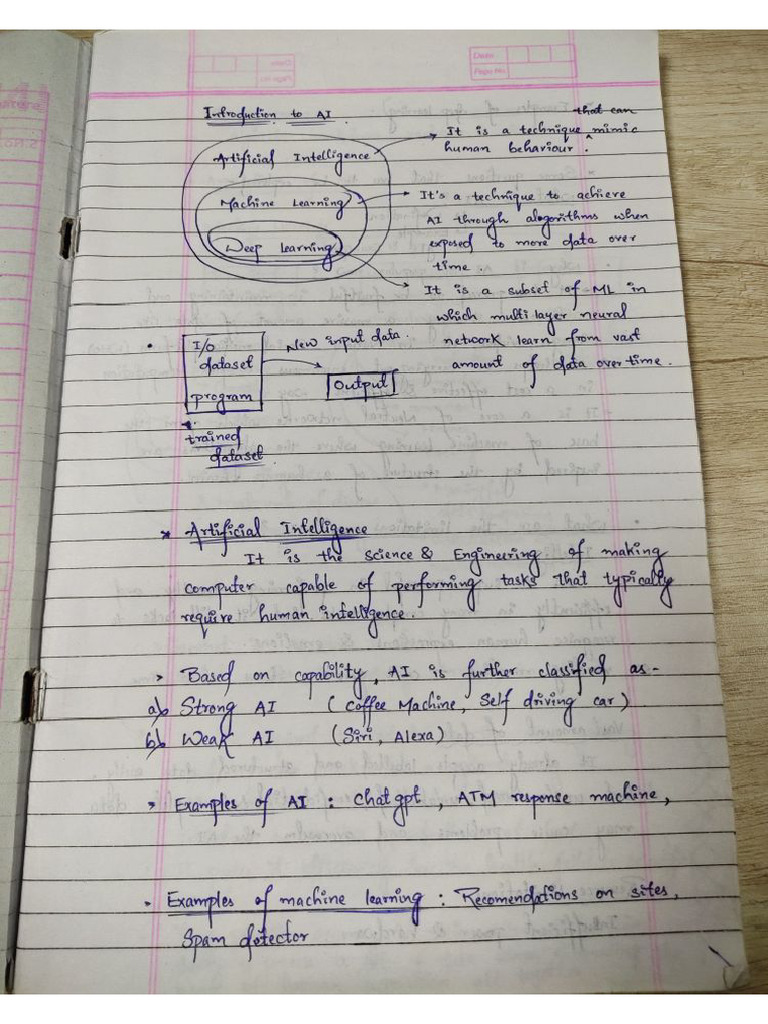 Date
Page No.
Introduction to AI
Artificial Intelligence
Machine Learning
Weep Learning
It is a technique that can mimic
human behaviour.
It's a technique to achieve
AI through alogorithms when
exposed to more data over
time.
It is a subset of ML in
which multilayer neural
network learn from vast
amount of data over time.
I/O
dataset
program
New input data.
Output
trained
dataset
* Artificial Intelligence
It is the science & Engineering of making
computer capable of performing tasks that typically
require human intelligence.
> Based on capability, AI is further classified as-
a) Strong AI (Coffee Machine, Self driving car)
b) Weak AI (Siri, Alexa)
> Examples of AI : Chatgpt, ATM response machine,
• Examples of machine learning : Recomendations on sites,
Spam detector